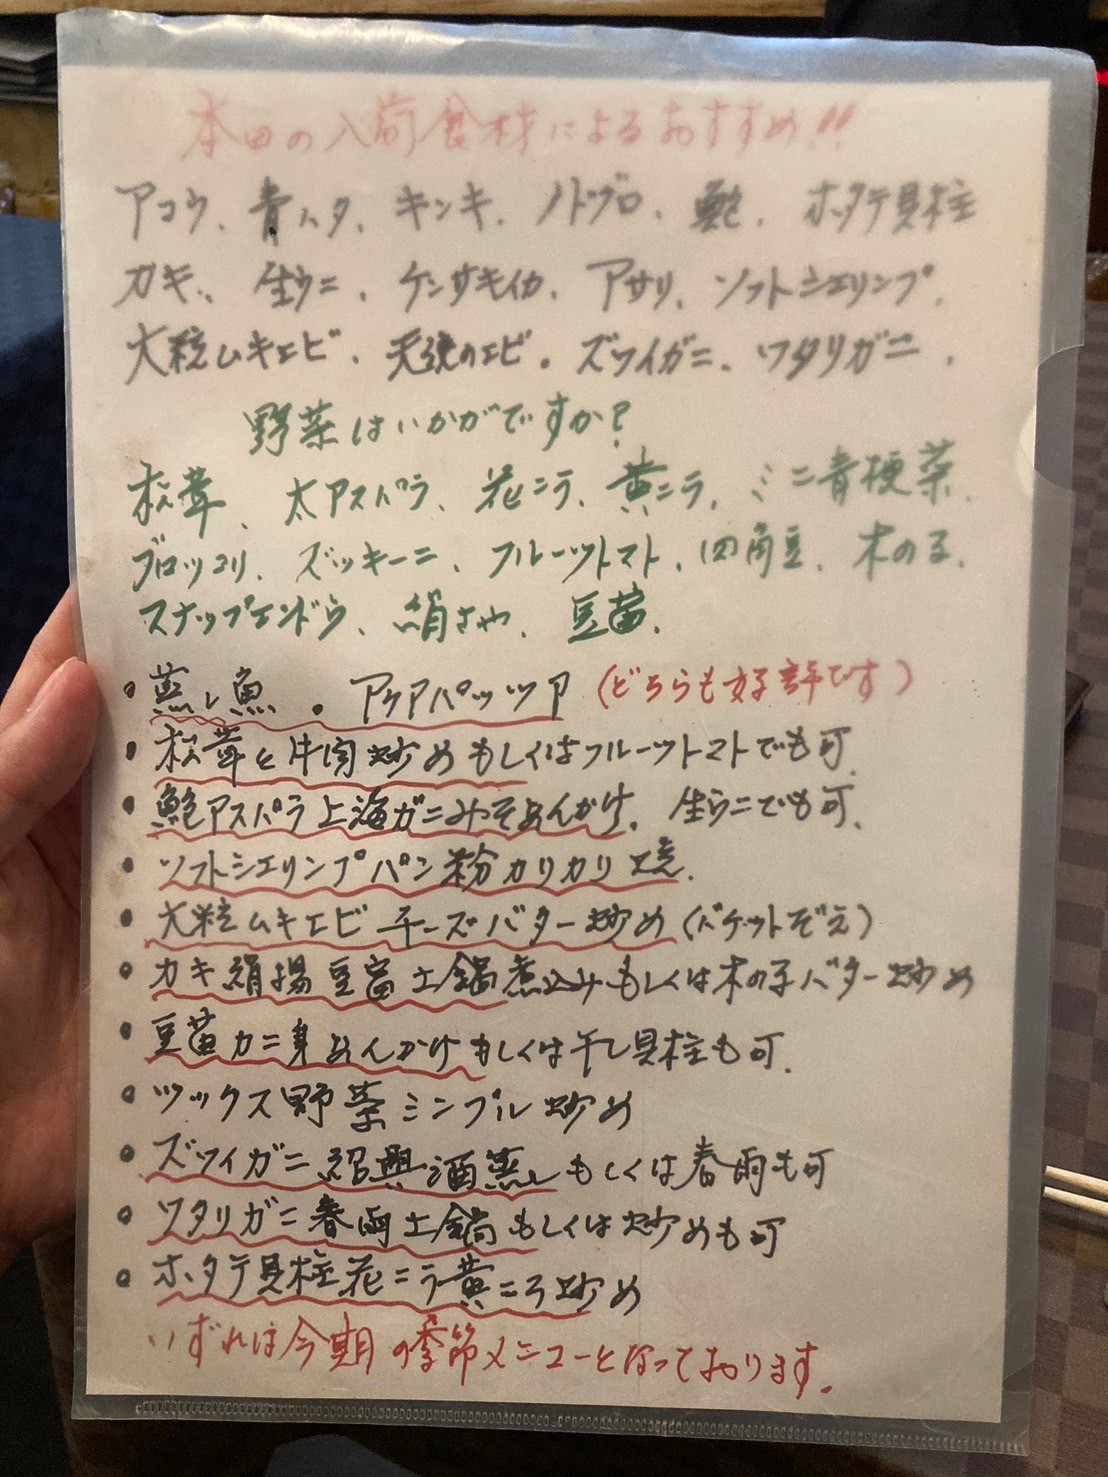 本日の入荷食材によるおすすめ!!
アコウ、青ハタ、キンキ、ノドグロ、鮑、ホタテ貝柱
カキ、生ウニ、ケンサキイカ、アサリ、ソフトシェリンプ、
大粒ムキエビ、天使のエビ。ズワイガニ、ワタリガニ、
野菜はいかがですか?
松茸、太アスパラ、花ニラ、黄ニラ、ミニ青梗菜、
ブロッコリ、ズッキーニ、フルーツトマト、四角豆、木の子、
スナップエンドウ、絹さや、豆苗、
・蒸し魚 。アクアパッツア(どちらも好評です)
・松茸と牛肉炒めもしくはフルーツトマトでも可、
・鮑アスパラ上海ガニみそあんかけ、生ウニでも可、
・ソフトシェリンプパン粉カリカリ焼、
・大粒ムキエビチーズバター炒め(バケットぞえ)
・カキ絹揚豆富土鍋煮込みもしくは木の子バター炒め
・豆苗カニ身あんかけもしくは干し貝柱も可、
・ツックス野菜シンプル炒め
・ズワイガニ紹興酒蒸しもしくは春雨も可
・ワタリガニ春雨土鍋もしくは炒めも可
・ホタテ貝柱花ニラ黄ニラ炒め
いずれは今期の季節メニューとなっております。